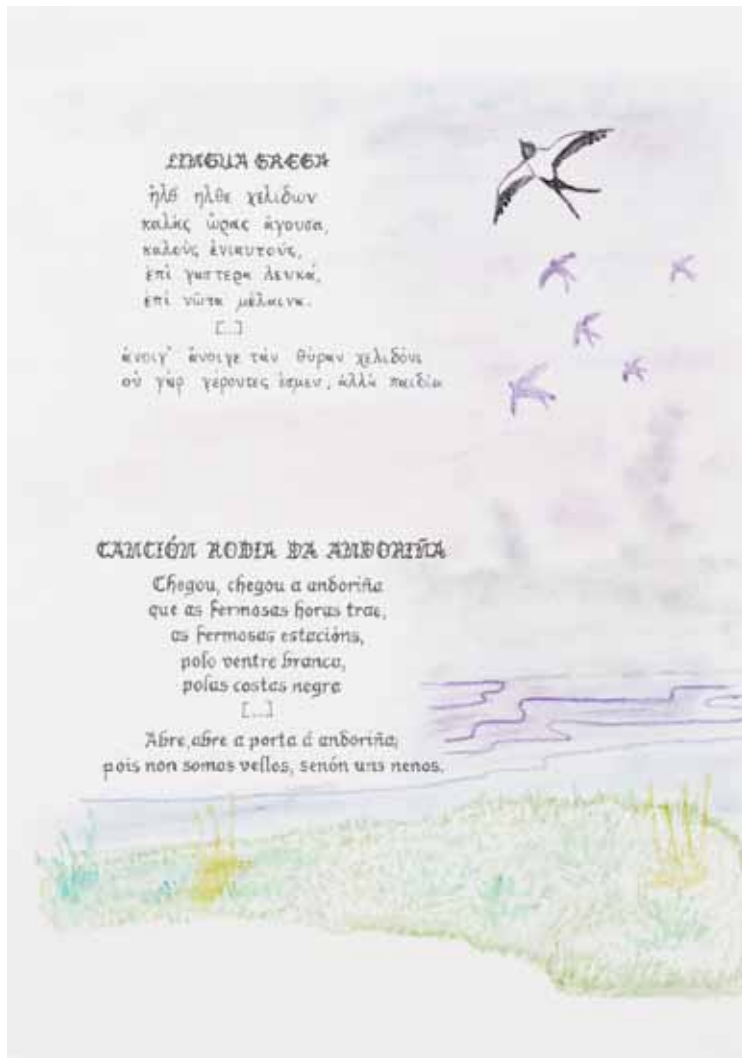 LINGUA GREGA
ἦλθ ἦλθε χελιδων
καλὰς ὥρας ἄγουσα,
καλοὺς ἐνιαυτούς,
ἐπὶ γαστερα λευκά,
ἐπὶ νῶτα μέλαινα.
[...]
ἄνοιγ' ἄνοιγε τὰν θύραν χελιδόνι
οὐ γὰρ γέροντες ἐσμεν, ἀλλὰ παιδία
CANCIÓN RODIA DA ANDORIÑA
Chegou, chegou a andoriña
que as fermosas horas trae,
as fermosas estacións,
polo ventre branca,
polas costas negra
[...]
Abre, abre a porta á andoriña,
pois non somos vellos, senón uns nenos.